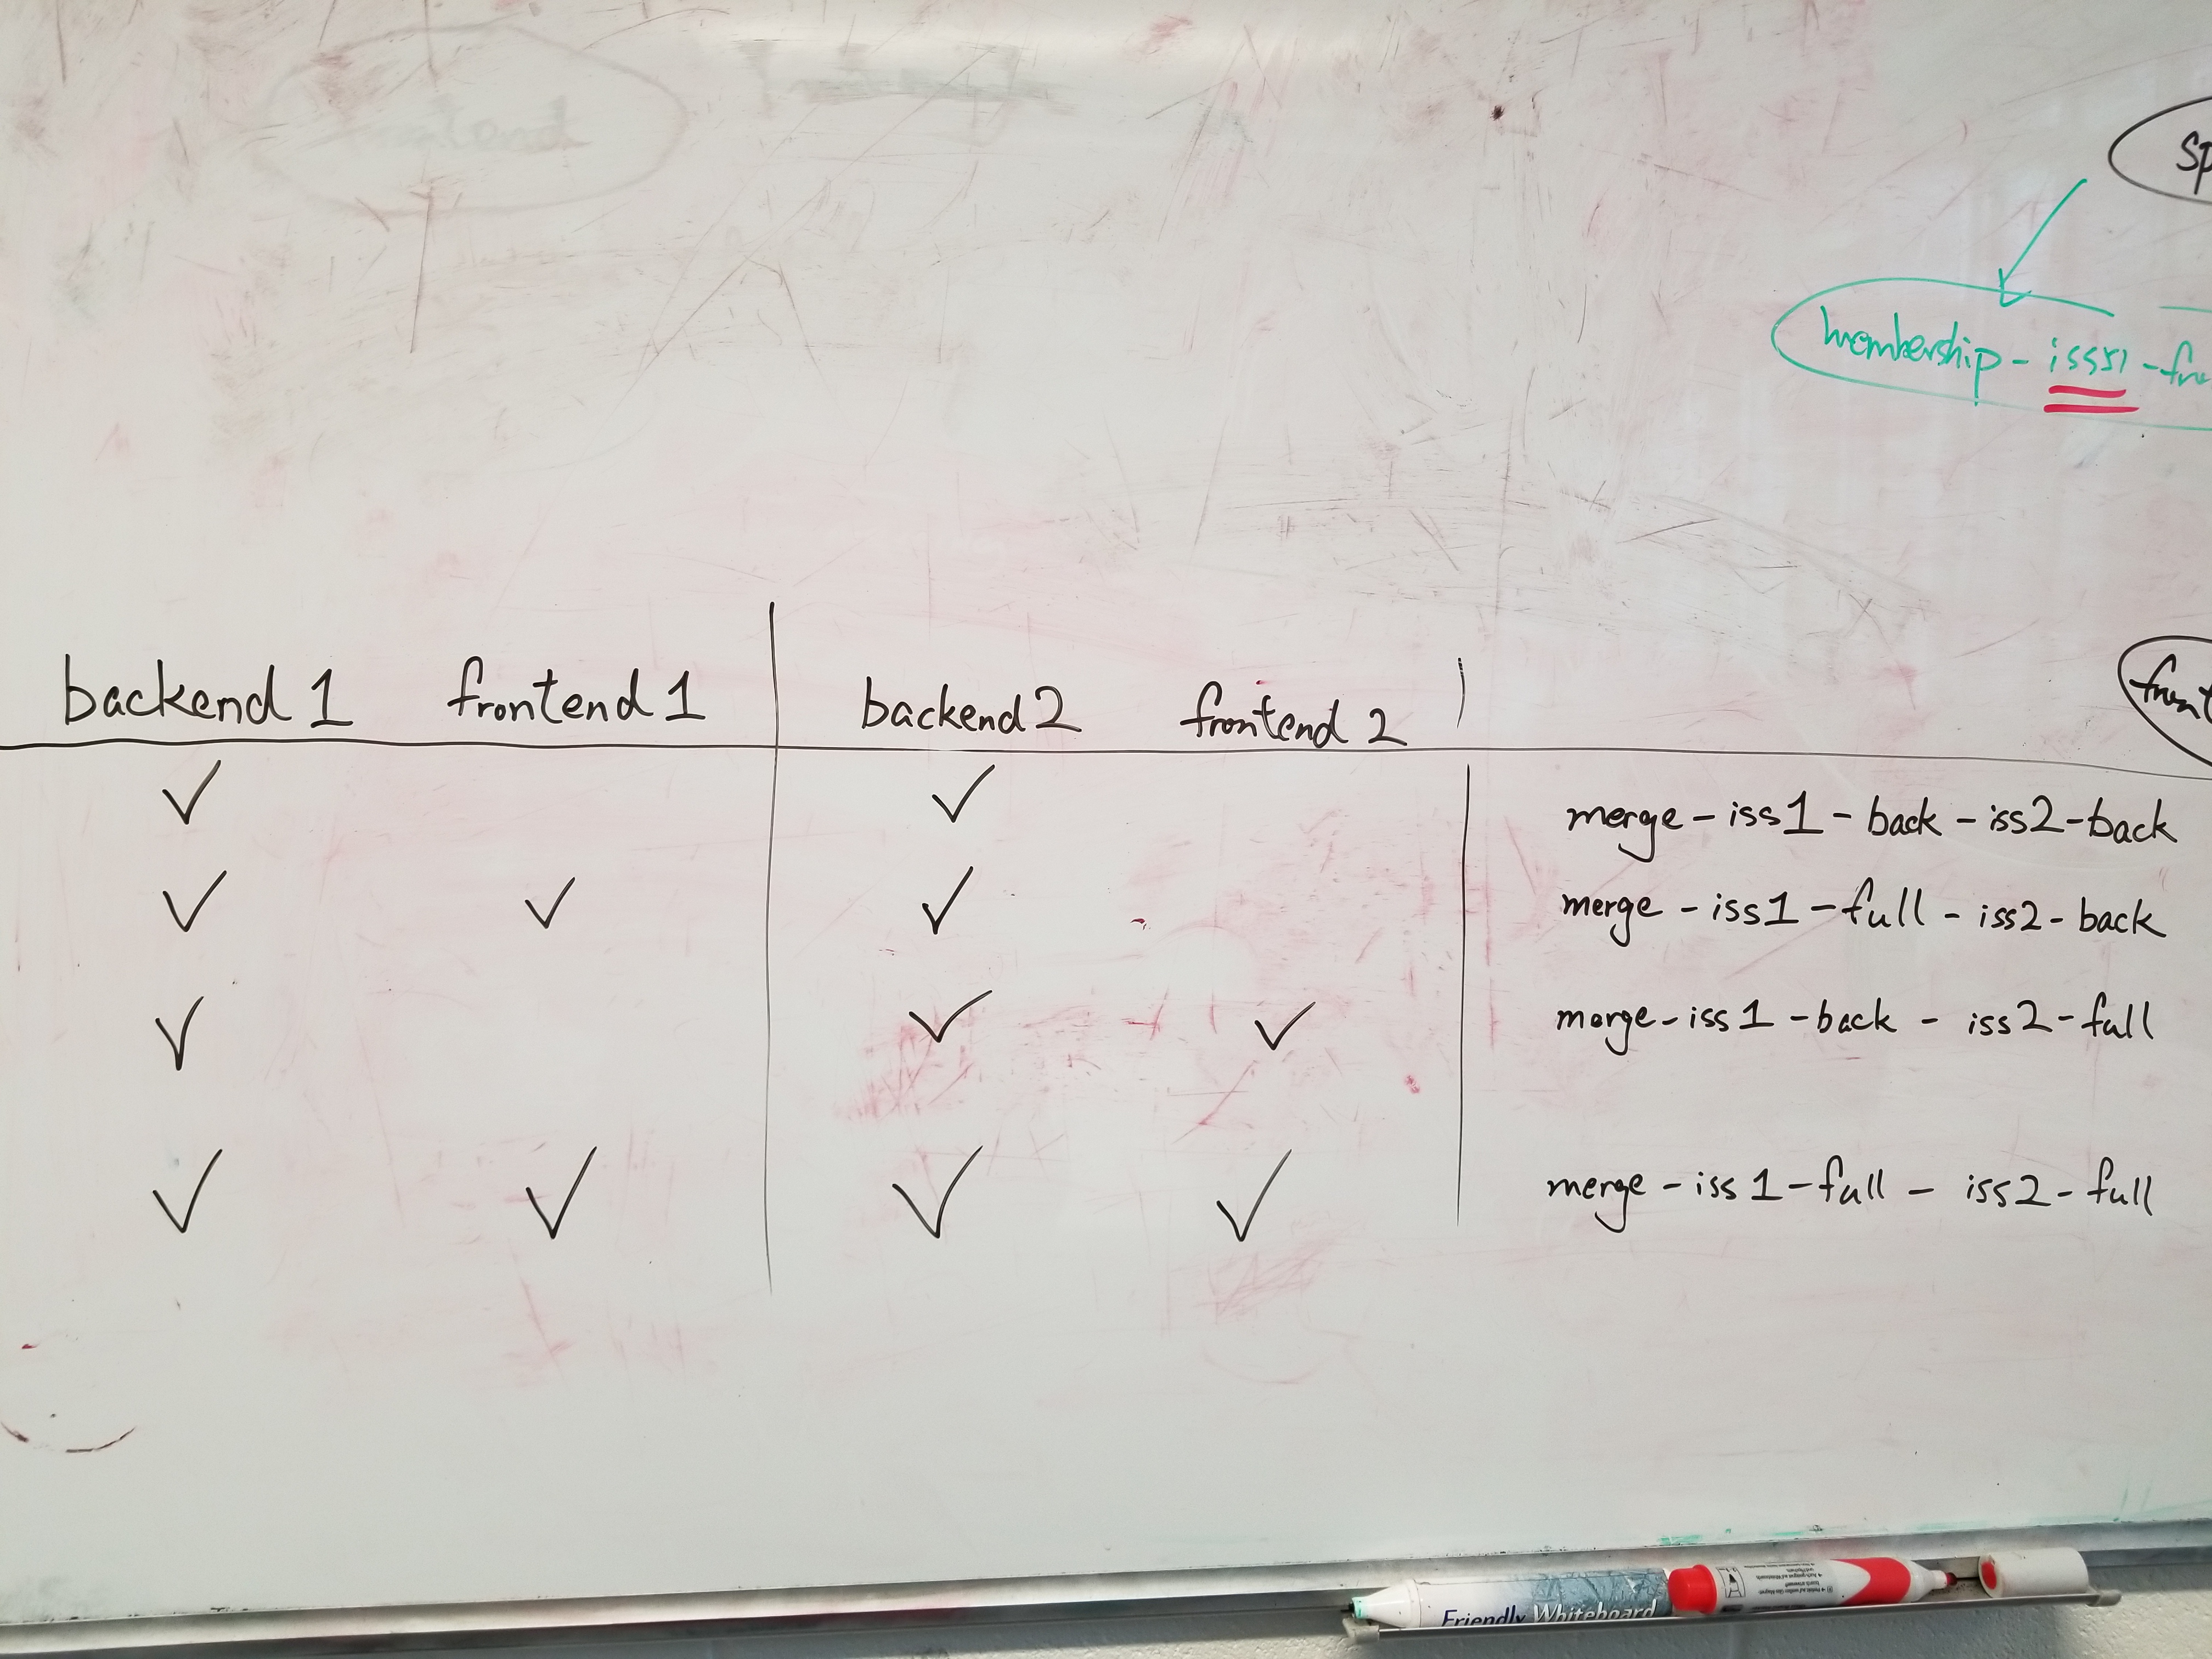 membership - iss51
backend 1 frontend 1 backend 2 frontend 2
✓ ✓ merge - iss1 - back - iss2 - back
✓ ✓ ✓ merge - iss1 - full - iss2 - back
✓ ✓ ✓ merge - iss1 - back - iss2 - full
✓ ✓ ✓ ✓ merge - iss1 - full - iss2 - full
Friendly Whiteboard